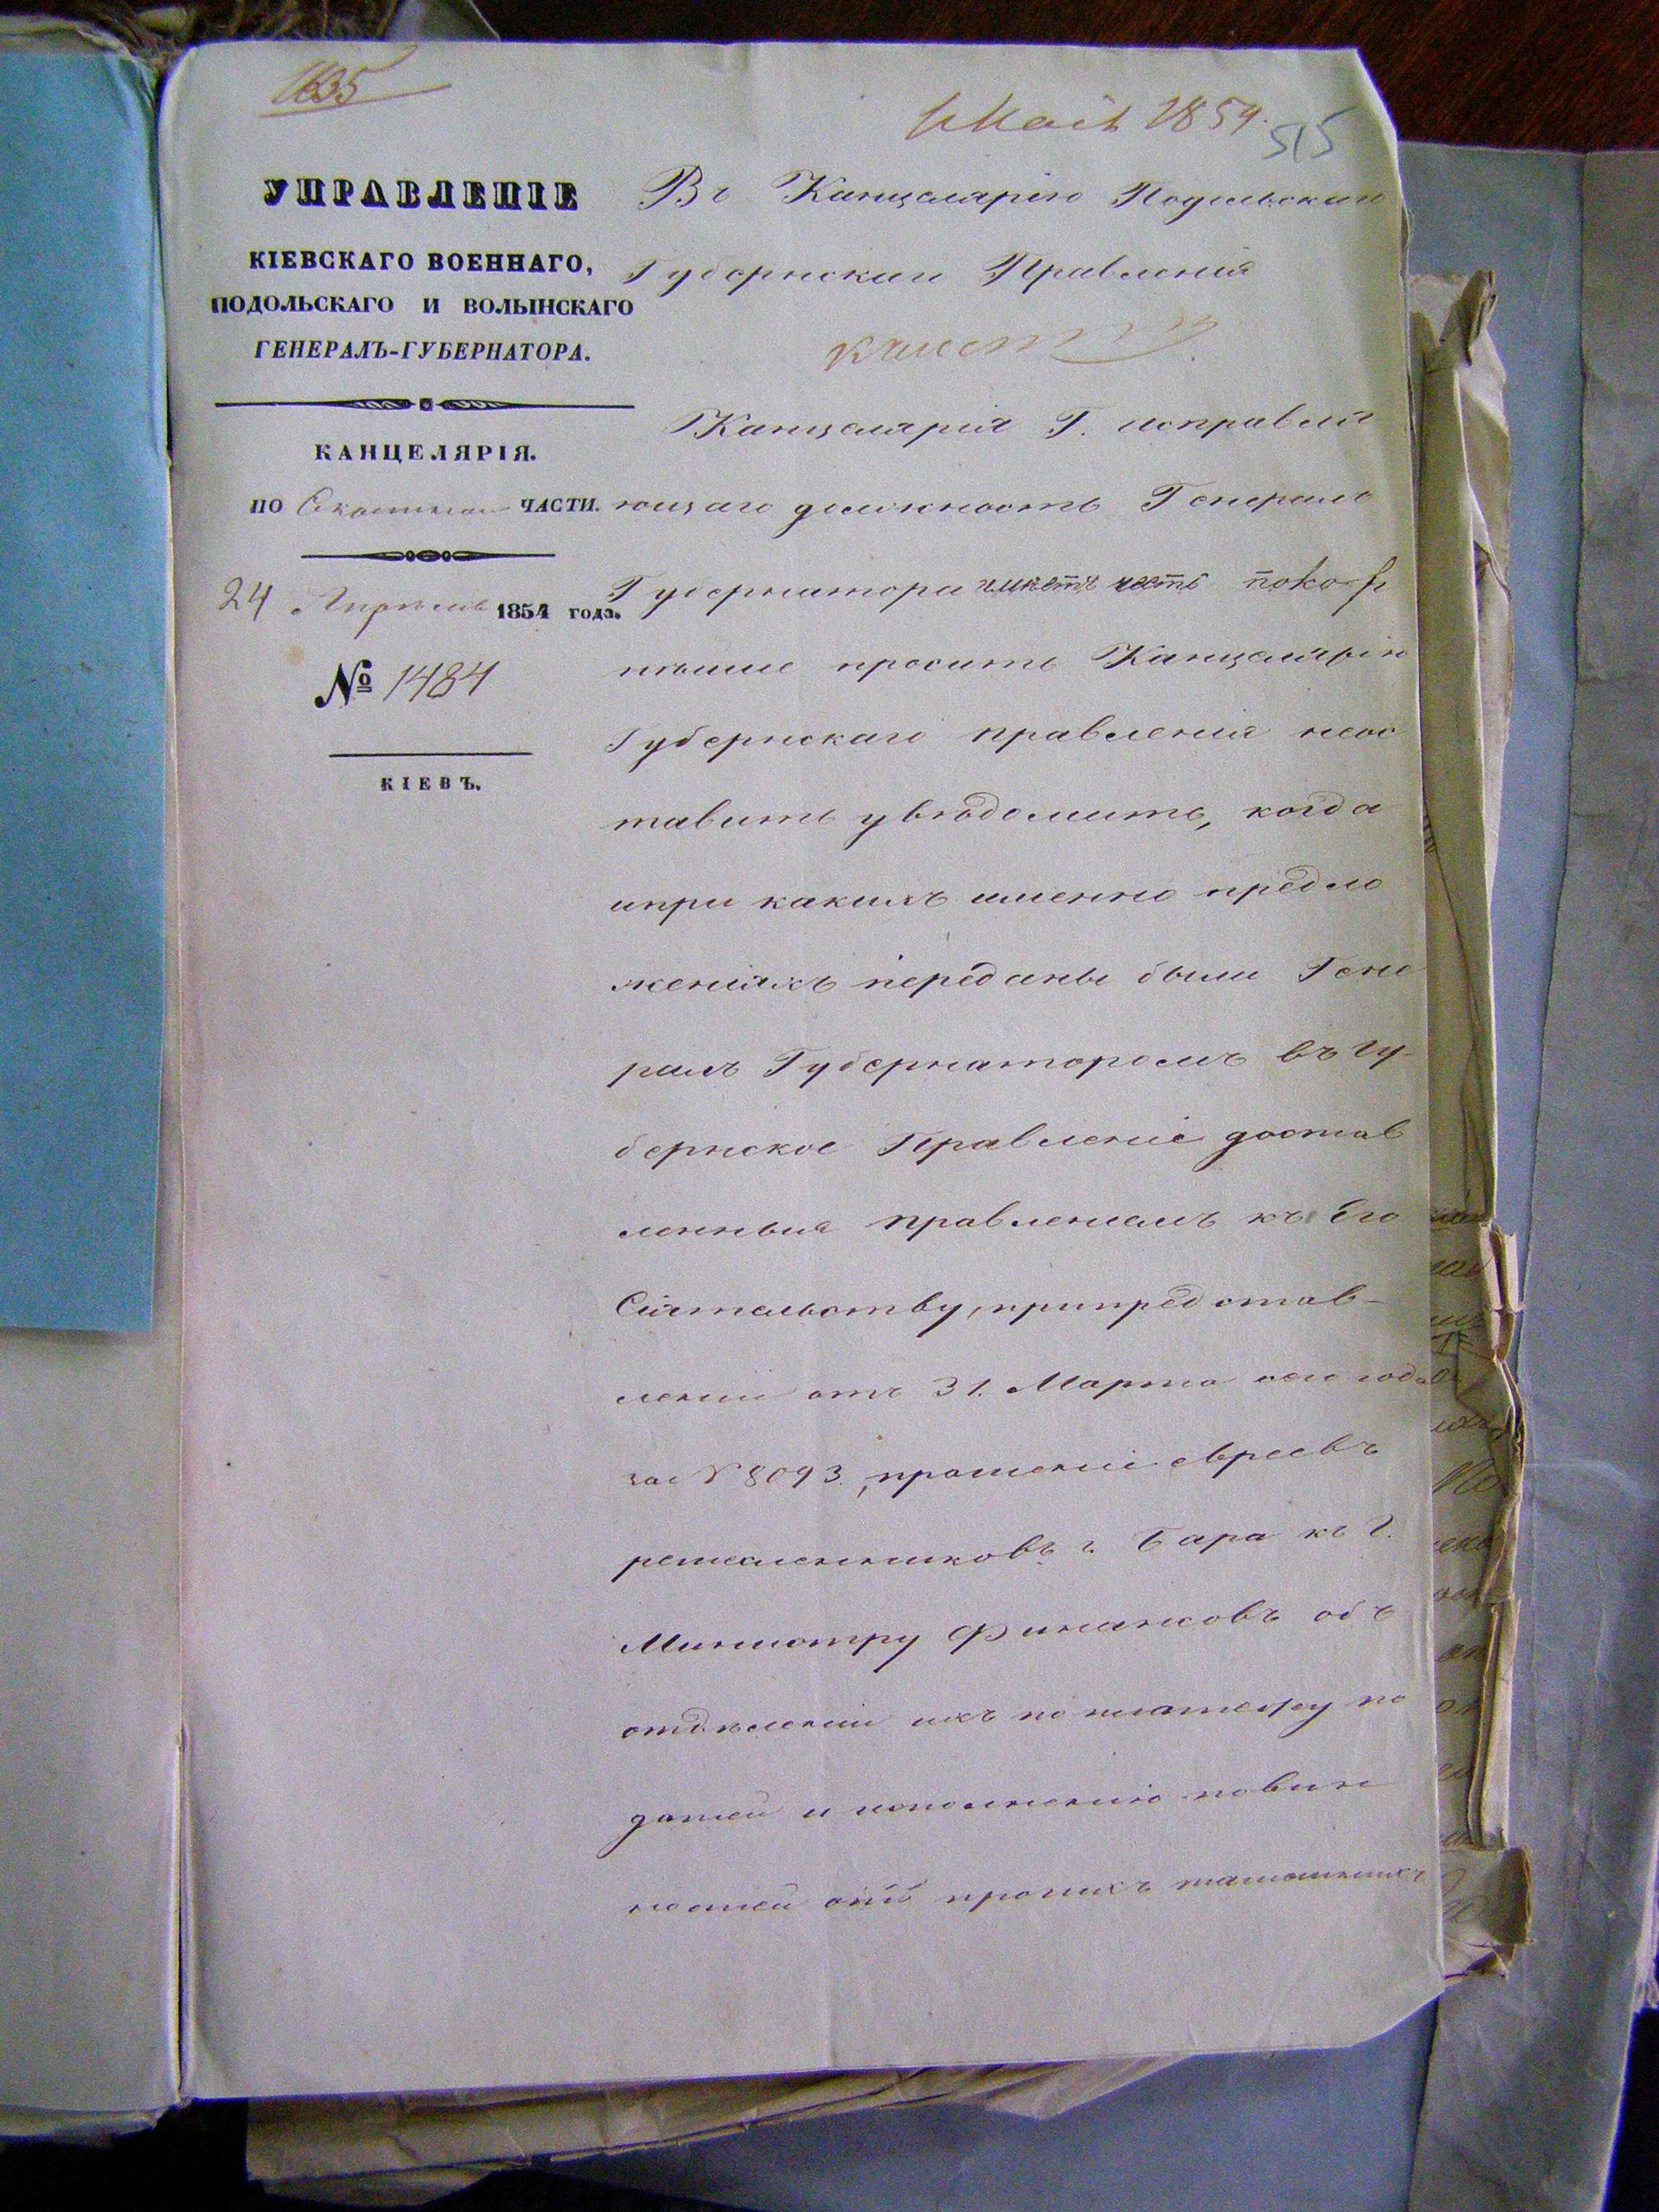 1635
1 Мая 1854.
515
УПРАВЛЕНІЕ
КІЕВСКАГО ВОЕННАГО,
ПОДОЛЬСКАГО И ВОЛЫНСКАГО
ГЕНЕРАЛЪ-ГУБЕРНАТОРА.
КАНЦЕЛЯРІЯ.
ПО ЧАСТИ.
24 Апрѣля 1854 года.
№ 1484
КІЕВЪ.
Въ Канцелярію Подольскаго
Губернскаго Правленія
Канцелярія Г. исправля
ющаго должность Генералъ
Губернатора имѣетъ честь покор
нѣйше просить Канцелярію
Губернскаго правленія неос
тавить увѣдомить, когда
и при какихъ именно предло
женіяхъ переданы были Гене
ралъ Губернаторомъ въ Гу-
бернское Правленіе достав
ленныя правленіемъ къ Его
Сіятельству, при представ-
леніи отъ 31. Марта сего года
за № 8093, прошеніе евреевъ
ремесленниковъ г. Бара къ Г.
Министру Финансовъ объ
отдѣленіи ихъ по платежу по
датей и исполненію повин
ностей отъ прочихъ тамошнихъ